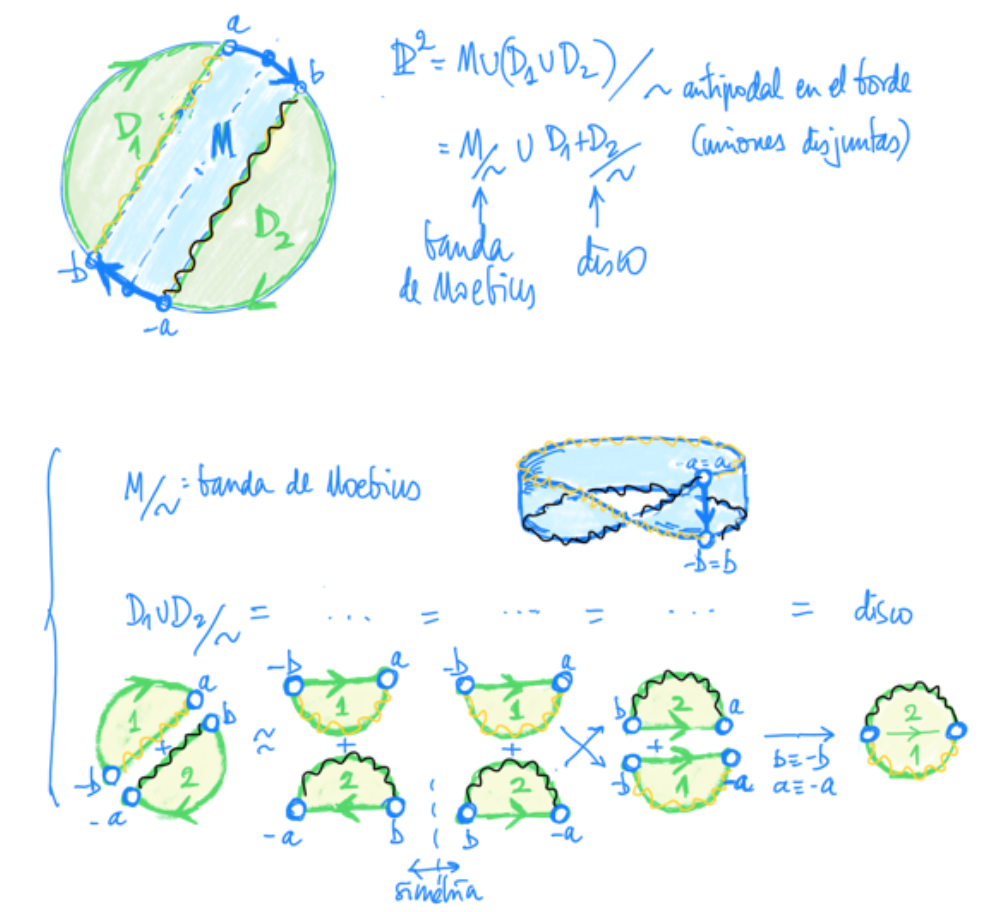 a
b
D₁
M
D₂
-b
-a
ℙ² = M∪(D₁∪D₂)/~ antipodal en el borde
= M/~ ∪ D₁+D₂/~ (uniones disjuntas)
banda de Moebius
disco
M/~ = banda de Moebius
-a=a
-b=b
D₁∪D₂/~ = ... = ... = ... = disco
1 + 2 a b -b -a
≈
-b a 1 + 2 -a b
simetría
-b a 1 + 2 b -a
b 2 a + -b 1 -a
b≡-b
a≡-a
2
1